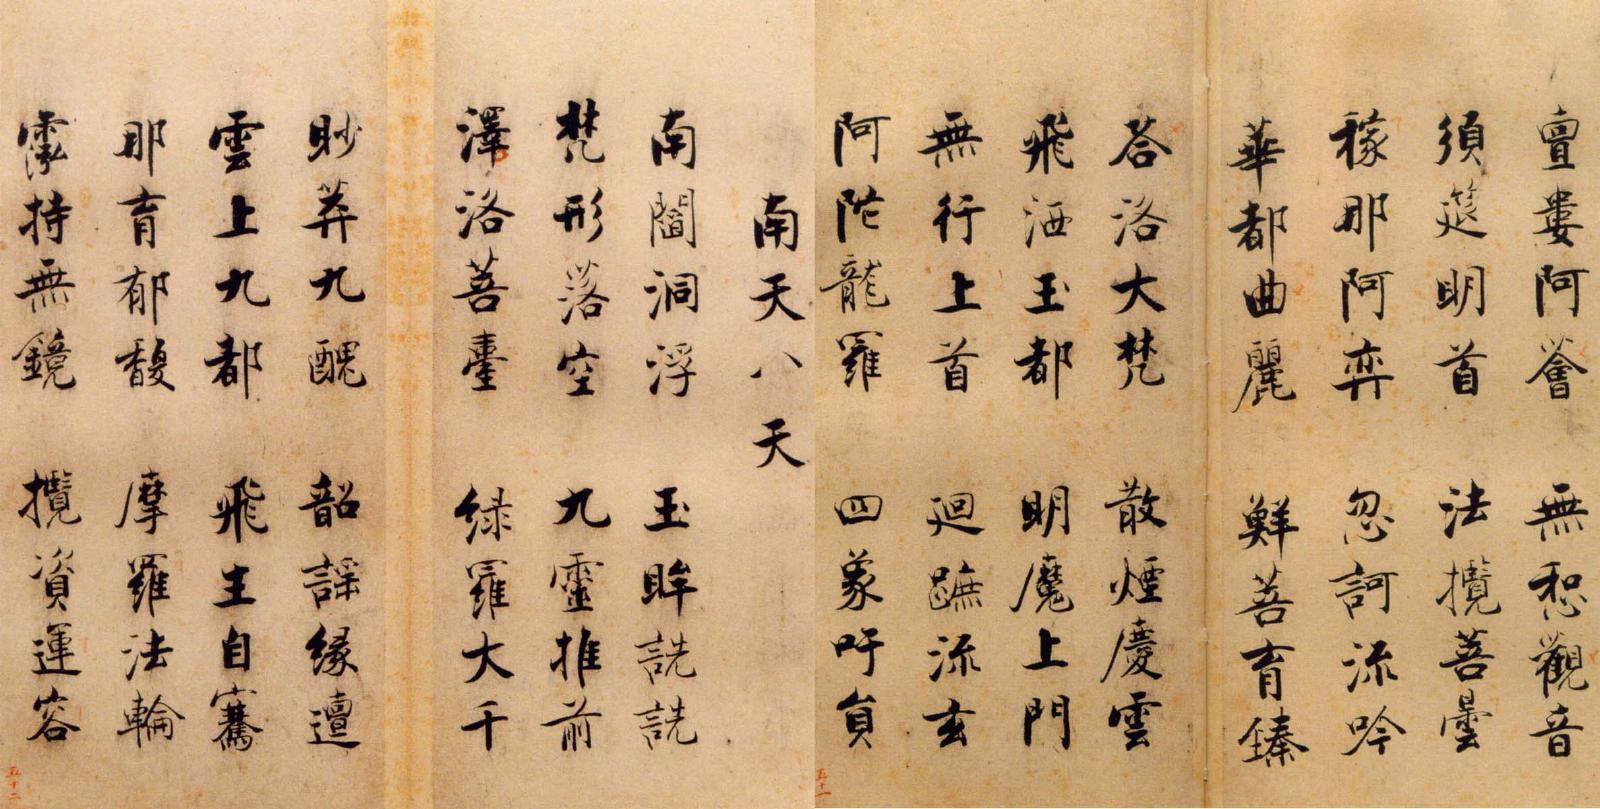 亶婁阿薈 無惒觀音
須筵明首 法攬菩曇
稼那阿弈 忽訶流吟
華都曲麗 鮮菩育臻
荅洛大梵 散煙慶雲
飛洒玉都 明魔上門
無行上首 迴蹠流玄
阿陁龍羅 四象吁員
南天八天
南閻洞浮 玉眸詵詵
梵形落空 九靈推前
澤洛菩臺 緑羅大千
眇莽九醜 韶謡縁邅
雲上九都 飛生自騫
那育郁馥 摩羅法輪
霐持無鏡 攬資運容
五十一
五十二